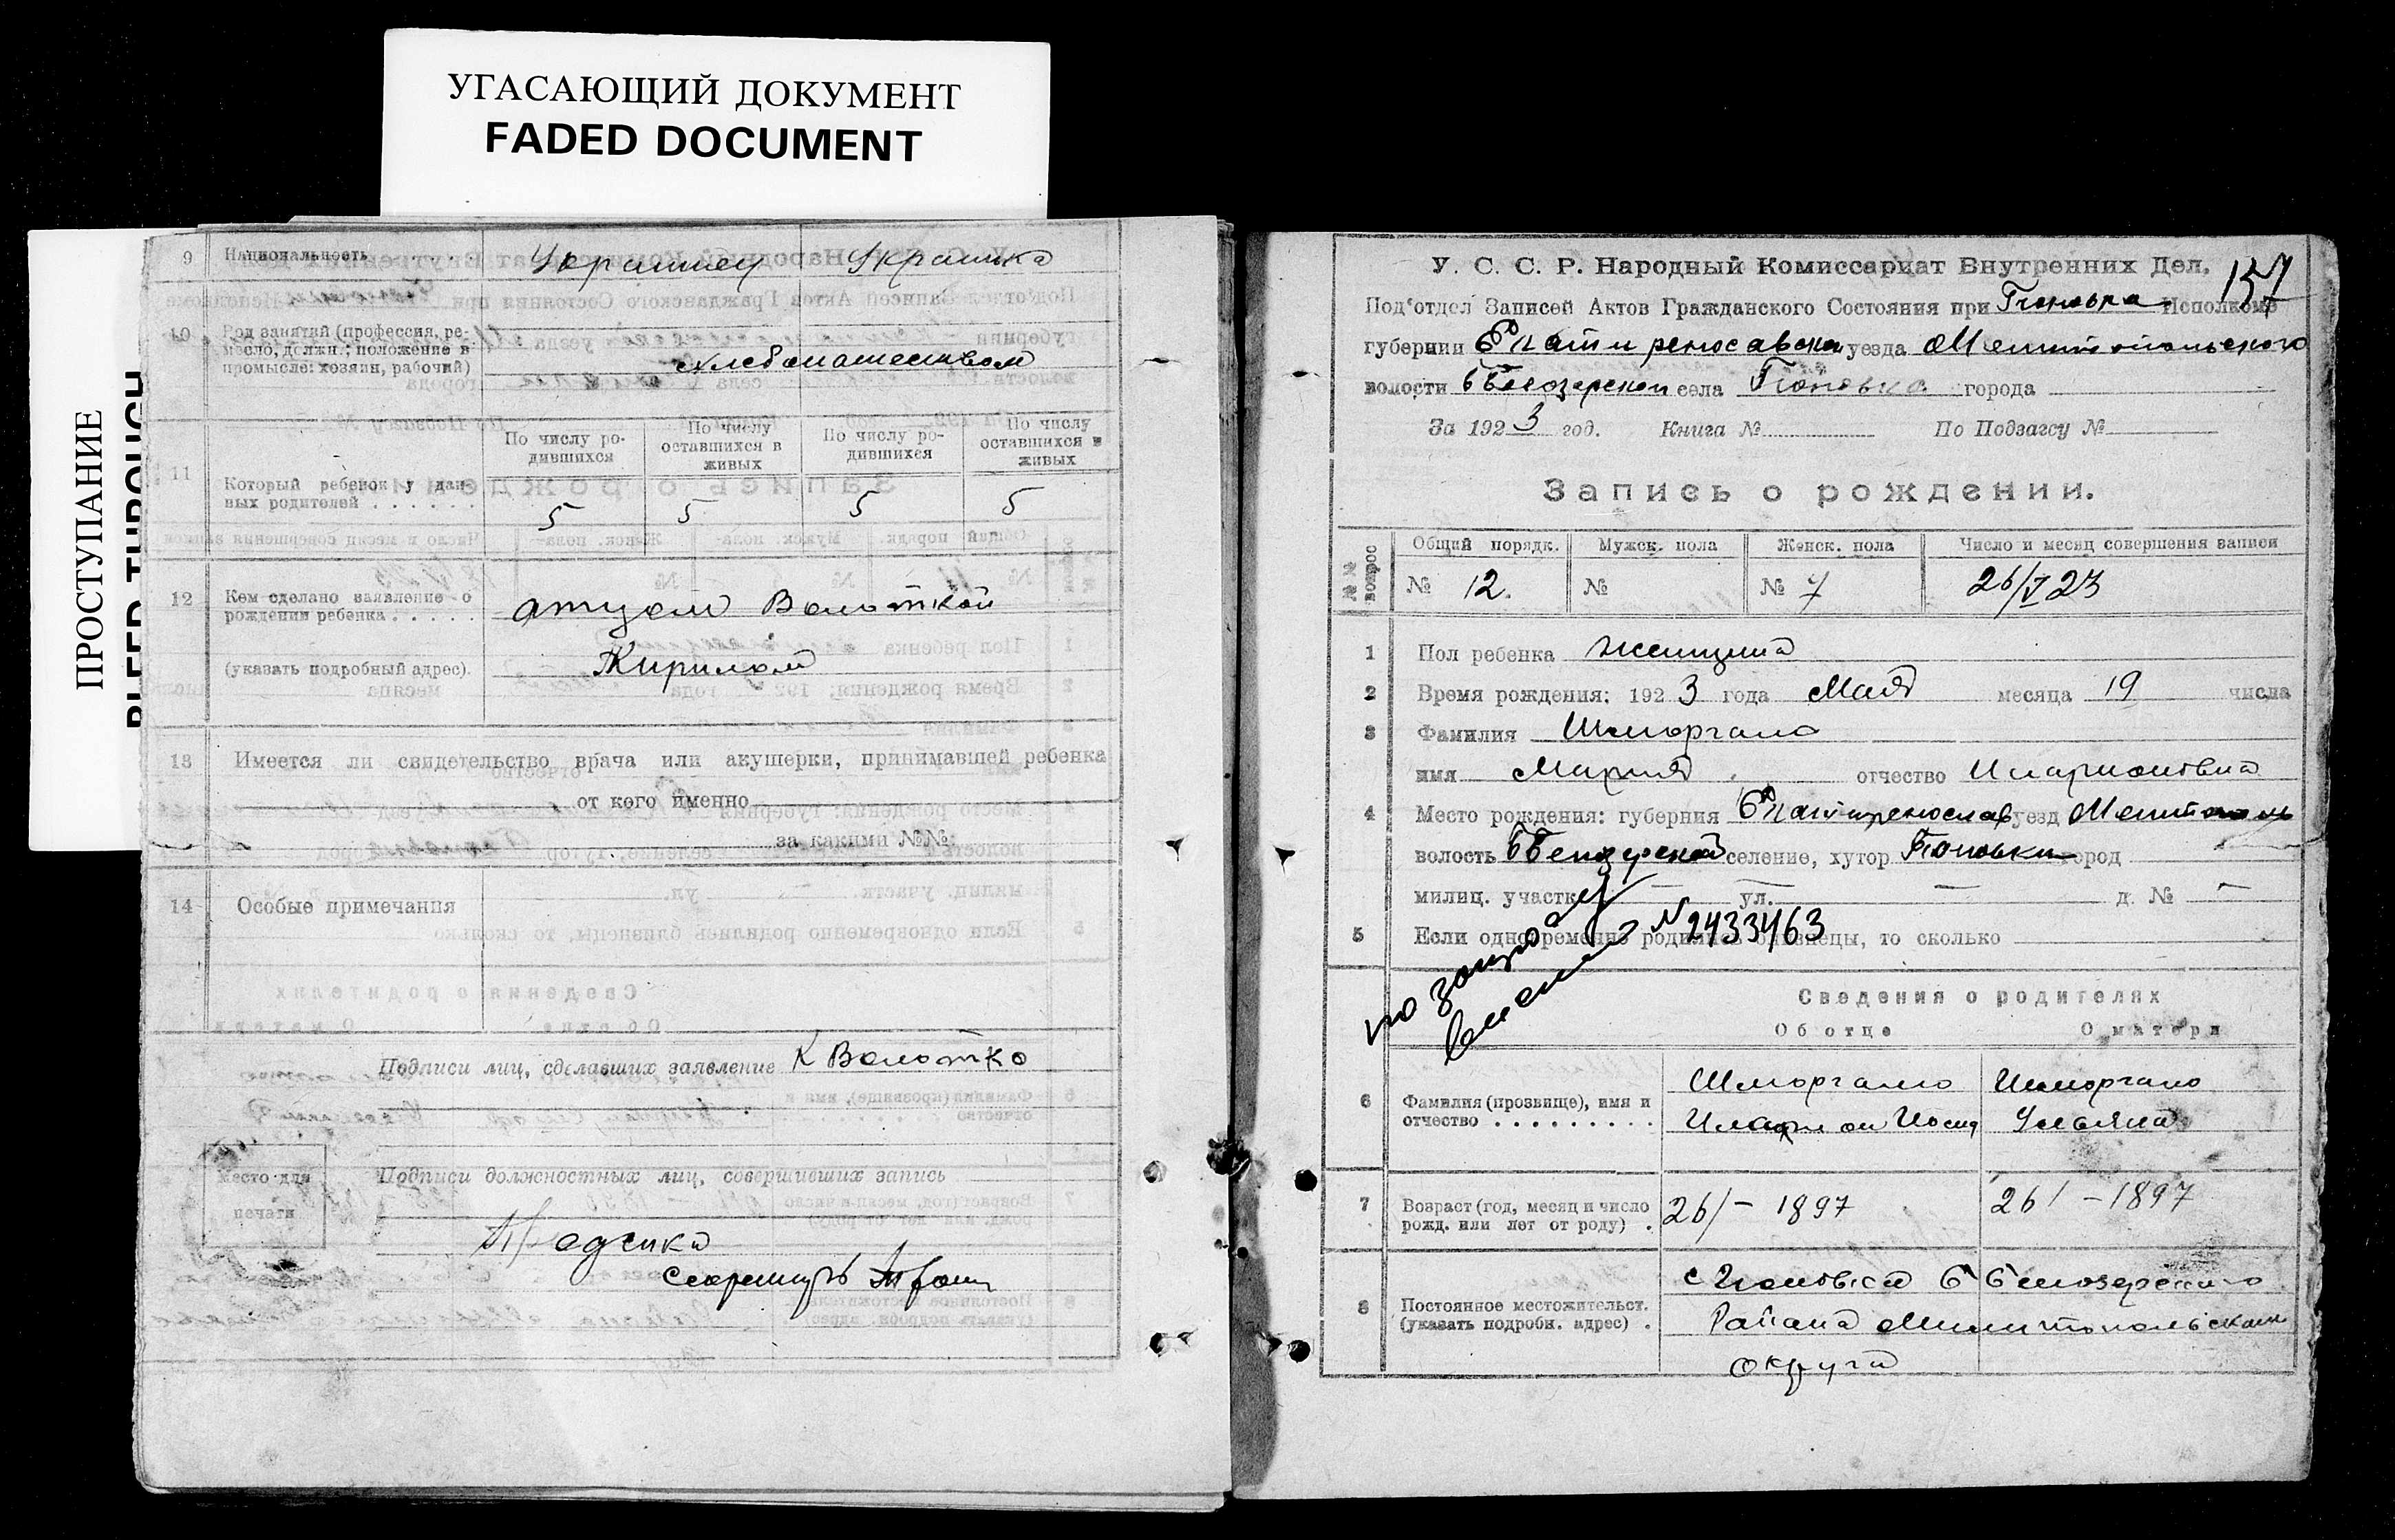 УГАСАЮЩИЙ ДОКУМЕНТ
FADED DOCUMENT
ПРОСТУПАНИЕ
BLEED THROUGH
9 Национальность Украинец Украинка
10 Род занятий (профессия, ре-
месло, должн.; положение в
промысле: хозяин, рабочий)
хлебопашеством
11 Который ребенок у дан-
ных родителей . . . . . .
По числу ро-
дившихся
По числу
оставшихся в
живых
По числу ро-
дившихся
По числу
оставшихся в
живых
5 5 5 5
12 Кем сделано заявление о
рождении ребенка . . . . .
(указать подробный адрес).
отцом Волоткой
Кирилом
13 Имеется ли свидетельство врача или акушерки, принимавшей ребенка
от кого именно
за какими №№
14 Особые примечания
Подписи лиц, сделавших заявление К Волотко
Подписи должностных лиц, совершивших запись
Место для
печати
секретарь
У. С. С. Р. Народный Комиссариат Внутренних Дел.
157
Под‘отдел Записей Актов Гражданского Состояния при Исполкоме
губернии Екатиреносавской уезда Мелитопольского
волости Б Белозерской села Поповка города
За 1923 год. Книга № По Подзагсу №
Запись о рождении.
№№ вопрос Общий порядк. Мужск. пола Женск. пола Число и месяц совершения записи
№ 12. № № 7 26/V 23
1 Пол ребенка женщина
2 Время рождения: 1923 года Мая месяца 19 числа
3 Фамилия Шморгало
имя Мария отчество Иларионовна
4 Место рождения: губерния Екатиренослав уезд Мелитополь
волость селение, хутор Поповки город
милиц. участк — ул. — д. № —
5 Если одновременно родились близнецы, то сколько
№ 2433463
Сведения о родителях
Об отце О матери
6 Фамилия (прозвище), имя и
отчество . . . . . . . . .
Шморгало Шморгало
Иларион Иосид Ульяна
7 Возраст (год, месяц и число
рожд. или лет от роду) .
26/ – 1897 26/ – 1897
8 Постоянное местожительст.
(указать подробн. адрес) .
с Поповка Б Белозерского
Района Мелитопольскаго
округа